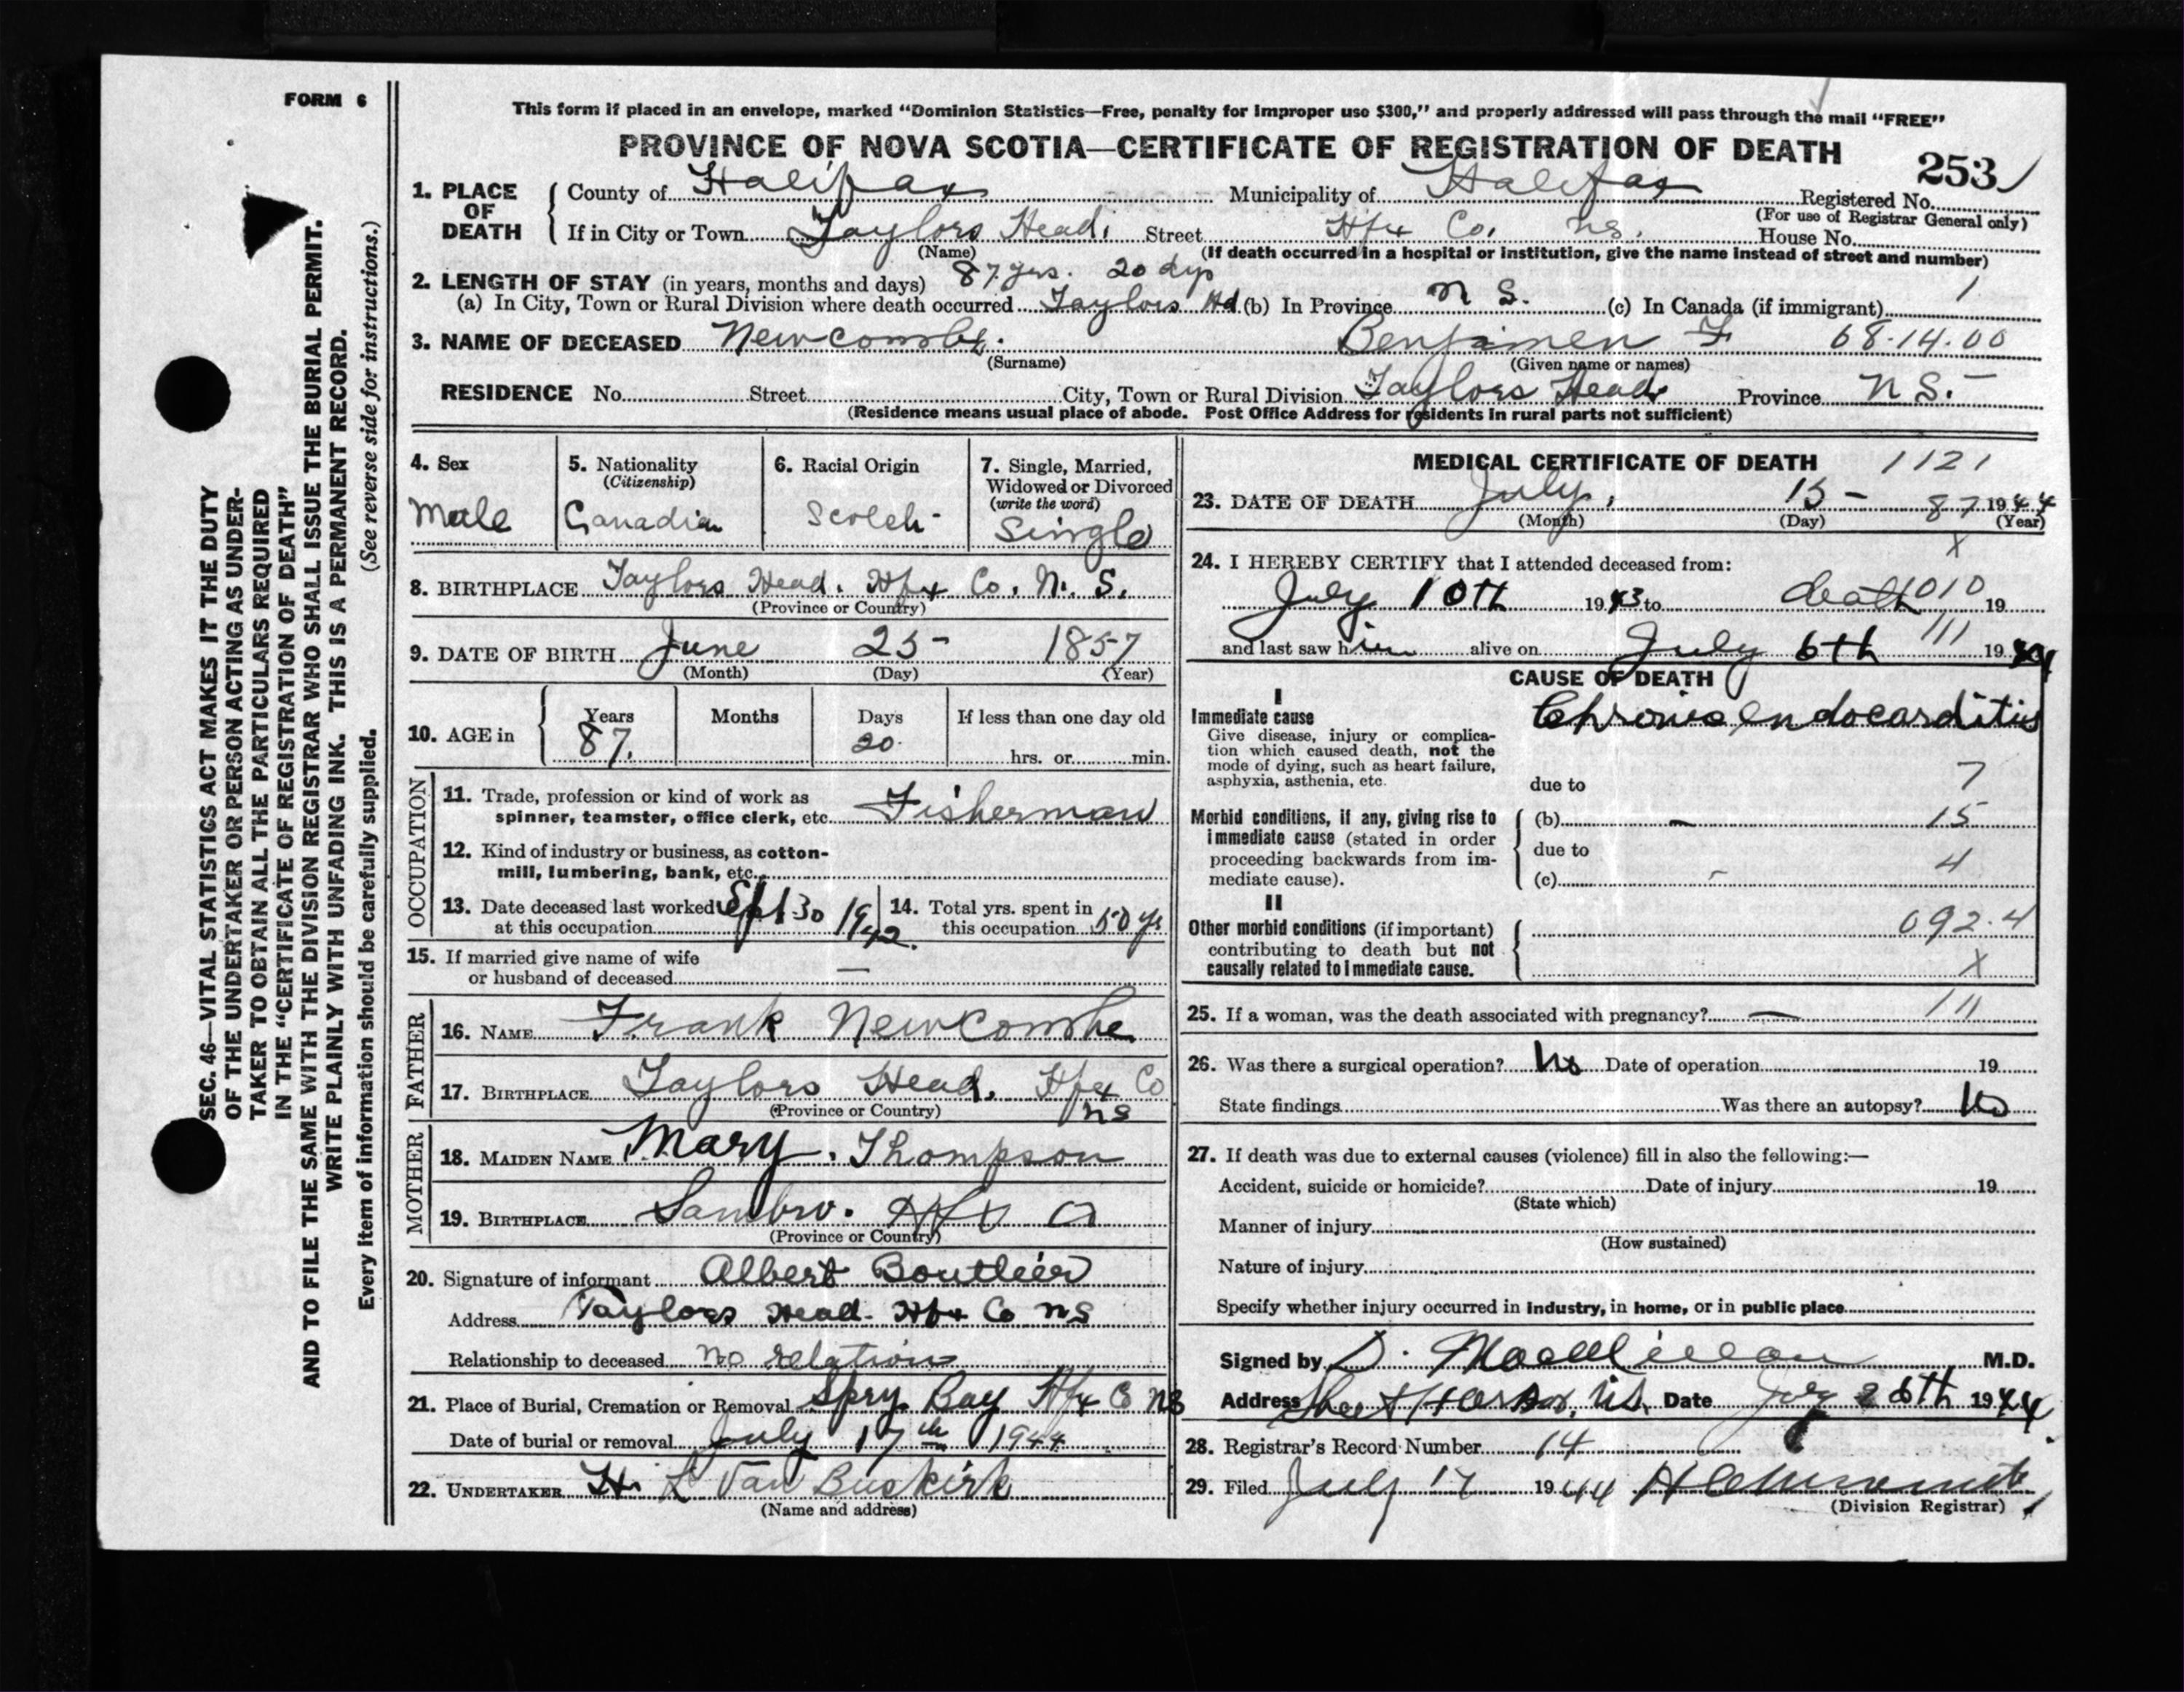 FORM 6
This form if placed in an envelope, marked “Dominion Statistics—Free, penalty for improper use $300,” and properly addressed will pass through the mail “FREE”
PROVINCE OF NOVA SCOTIA—CERTIFICATE OF REGISTRATION OF DEATH
253
1. PLACE OF DEATH
County of Halifax Municipality of Halifax Registered No.
(For use of Registrar General only)
If in City or Town Taylors Head. Street Hfx Co. NS. House No.
(Name) (If death occurred in a hospital or institution, give the name instead of street and number)
2. LENGTH OF STAY (in years, months and days) 87 yrs. 20 dys
(a) In City, Town or Rural Division where death occurred Taylors Hd (b) In Province N S. (c) In Canada (if immigrant) 1
3. NAME OF DECEASED Newcombe. Benjamen F 68.14.00
(Surname) (Given name or names)
RESIDENCE No. Street City, Town or Rural Division Taylors Head Province N S.
(Residence means usual place of abode. Post Office Address for residents in rural parts not sufficient)
4. Sex
Male
5. Nationality
(Citizenship)
Canadian
6. Racial Origin
Scotch
7. Single, Married,
Widowed or Divorced
(write the word)
Single
8. BIRTHPLACE Taylors Head. Hfx Co. N. S.
(Province or Country)
9. DATE OF BIRTH June 25 1857
(Month) (Day) (Year)
10. AGE in
Years Months Days If less than one day old
87. 20. hrs. or min.
OCCUPATION
11. Trade, profession or kind of work as
spinner, teamster, office clerk, etc. Fisherman
12. Kind of industry or business, as cotton-
mill, lumbering, bank, etc.
13. Date deceased last worked
at this occupation Sept 30 1942.
14. Total yrs. spent in
this occupation 50 yr
15. If married give name of wife
or husband of deceased —
FATHER
16. NAME Frank Newcombe
17. BIRTHPLACE Taylors Head. Hfx Co
NS
(Province or Country)
MOTHER
18. MAIDEN NAME Mary. Thompson
19. BIRTHPLACE Sambro. Hfx Co
(Province or Country)
20. Signature of informant Albert Boutlier
Address Taylors Head. Hfx Co NS
Relationship to deceased no relation
21. Place of Burial, Cremation or Removal Spry Bay Hfx Co NS
Date of burial or removal July 17th 1944
22. UNDERTAKER H. L Van Buskirk
(Name and address)
MEDICAL CERTIFICATE OF DEATH 1121
23. DATE OF DEATH July, 15 - 87 1944
(Month) (Day) (Year)
X
24. I HEREBY CERTIFY that I attended deceased from:
July 10th 1943 to death 1010 19
and last saw him alive on July 6th 111 1944
CAUSE OF DEATH
I
Immediate cause
Give disease, injury or complica-
tion which caused death, not the
mode of dying, such as heart failure,
asphyxia, asthenia, etc.
Chronic endocarditis
due to 7
Morbid conditions, if any, giving rise to
immediate cause (stated in order
proceeding backwards from im-
mediate cause).
(b) — 15
due to 4
(c) –
II
Other morbid conditions (if important)
contributing to death but not
causally related to immediate cause.
092.4
X
25. If a woman, was the death associated with pregnancy? — 111
26. Was there a surgical operation? No Date of operation 19
State findings Was there an autopsy? No
27. If death was due to external causes (violence) fill in also the following:—
Accident, suicide or homicide? Date of injury 19
(State which)
Manner of injury
(How sustained)
Nature of injury
Specify whether injury occurred in industry, in home, or in public place
Signed by D. MacMillan M.D.
Address Sheet Harbor, N.S. Date July 26th 1944.
28. Registrar's Record Number 14
29. Filed July 17 1944
(Division Registrar)
SEC. 46—VITAL STATISTICS ACT MAKES IT THE DUTY
OF THE UNDERTAKER OR PERSON ACTING AS UNDER-
TAKER TO OBTAIN ALL THE PARTICULARS REQUIRED
IN THE “CERTIFICATE OF REGISTRATION OF DEATH”
AND TO FILE THE SAME WITH THE DIVISION REGISTRAR WHO SHALL ISSUE THE BURIAL PERMIT.
WRITE PLAINLY WITH UNFADING INK. THIS IS A PERMANENT RECORD.
Every item of information should be carefully supplied. (See reverse side for instructions.)